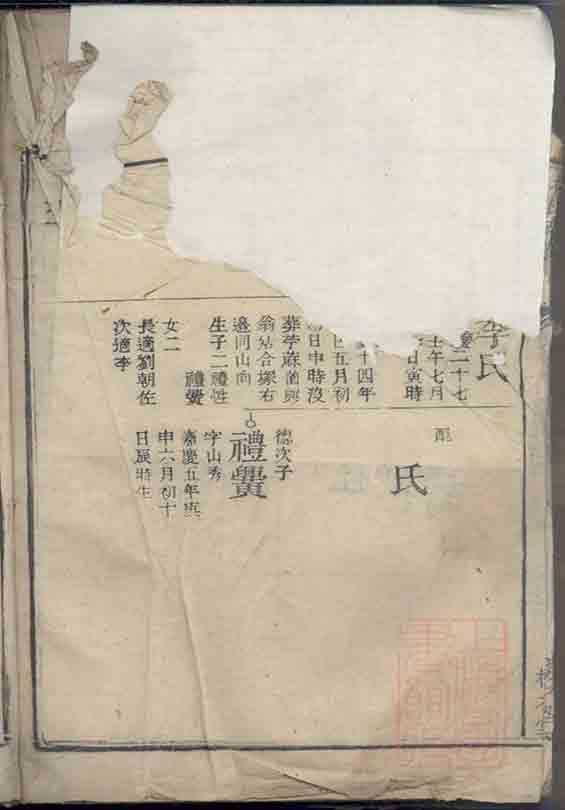 李氏
二十七
壬午七月
日寅時
十四年
五月初
日申時沒
葬芧蔴㘭與
翁姑合塚右
邊同山向
生子二禮性
禮
女二
長適劉朝佐
次適李
配
氏
德次子
禮
字山秀
嘉慶五年庚
申六月初十
日辰時生